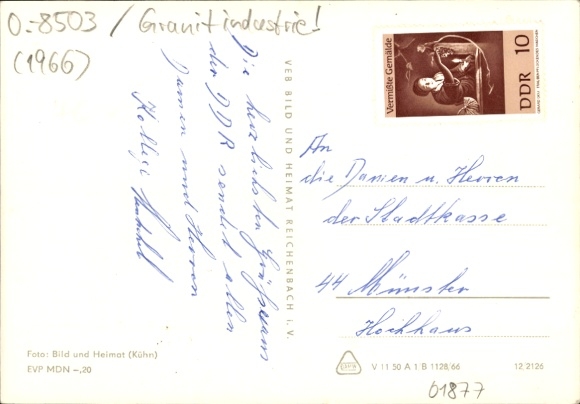 O-8503 / Granitindustrie!
(1966)
Die herzlichsten Grüsse aus
der DDR sendet allen
Damen und Herren
VEB BILD UND HEIMAT REICHENBACH i. V.
Vermißte Gemälde
DDR 10
An
die Damen u. Herren
der Stadtkasse
44 Münster
Hochhaus
Foto: Bild und Heimat (Kühn)
EVP MDN –,20
V 11 50 A 1 B 1128/66
12 2126
01877